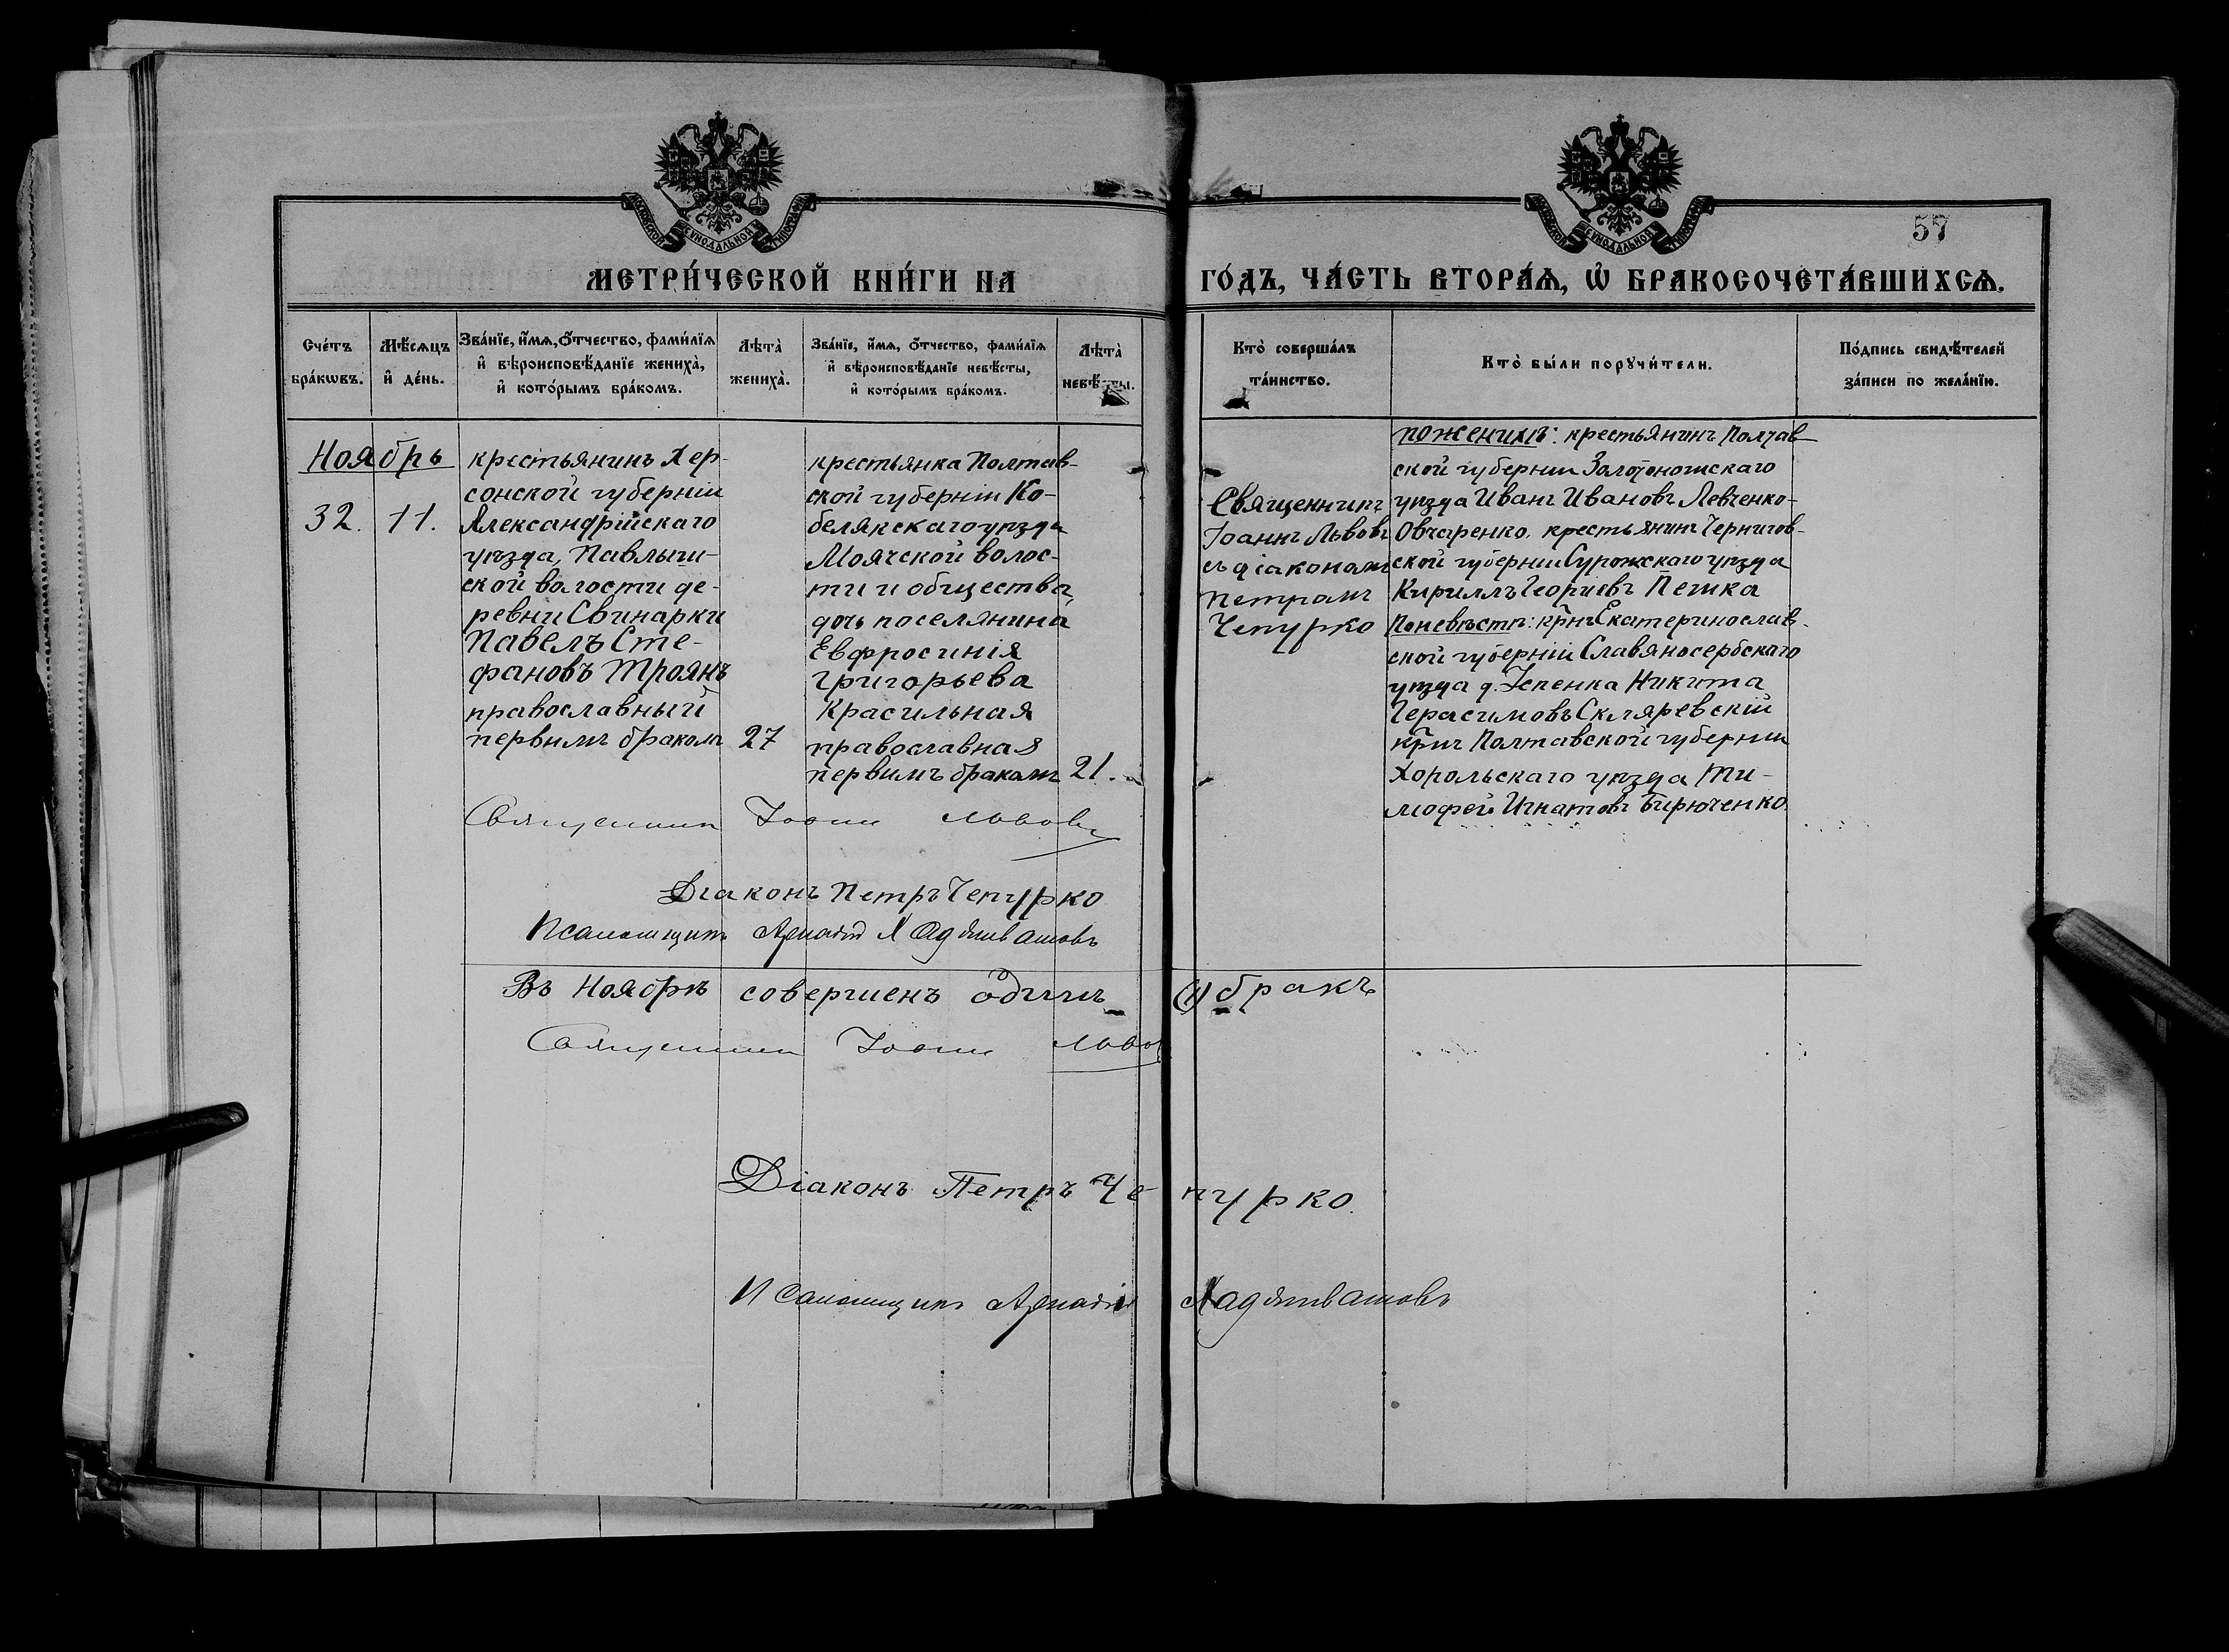 57
МЕТРИ́ЧЕСКОЙ КНИ́ГИ НА ГО́ДЪ, ЧА́СТЬ ВТОРА́Ѧ, Ѡ҆ БРАКОСОЧЕТА́ВШИХСѦ.
Сче́тъ
бра́кѡвъ.
Мѣ́сѧцъ
и҆ де́нь.
Зва́нїе, и҆́мѧ, ѻ҆́тчество, фами́лїѧ
и҆ вѣроисповѣ́данїе жениха̀,
и҆ кото́рымъ бра́комъ.
Лѣта̀
жениха̀.
Зва́нїе, и҆́мѧ, ѻ҆́тчество, фами́лїѧ
и҆ вѣроисповѣ́данїе невѣ́сты,
и҆ кото́рымъ бра́комъ.
Лѣта̀
невѣ́сты.
Кто̀ соверша́лъ
та́инство.
Кто̀ бы́ли порꙋчи́тели.
По́дпись свидѣ́телей
за́писи по жела́нїю.
Ноябрь
32. 11.
крестьянинъ Хер-
сонской губерніи
Александрійскаго
уѣзда, Павлыш-
ской волости де-
ревни Свинарки
Павелъ Сте-
фановъ Троянъ
православный
первымъ бракомъ
27
крестьянка Полтав-
ской губерніи Ко-
белякскаго уѣзда
Моячской волос-
ти и общества,
дочь поселянина
Евфросинія
Григорьева
Красильная
православная
первымъ бракомъ
21.
Священникъ
Іоаннъ Львовъ
съ діакономъ
Петромъ
Чепурко
по женихѣ: крестьянинъ Полтав-
ской губерніи Золотоношскаго
уѣзда Иванъ Ивановъ Левченко-
Овчаренко, крестьянинъ Чернигов-
ской губерніи Суражскаго уѣзда
Кириллъ Георгіевъ Пешка
По невѣстѣ: крнъ Екатеринослав-
ской губерніи Славяносербскаго
уѣзда д. Успенка Никита
Герасимовъ Скляревскій
крнъ Полтавской губерніи
Хорольскаго уѣзда Ти-
мофей Игнатовъ Бирюченко.
Священникъ Іоаннъ Львовъ
Діаконъ Петръ Чепурко
Псаломщикъ
Въ Ноябрѣ совершенъ одинъ (1) бракъ
Священникъ Іоаннъ Львовъ
Діаконъ Петръ Чепурко.
Псаломщикъ